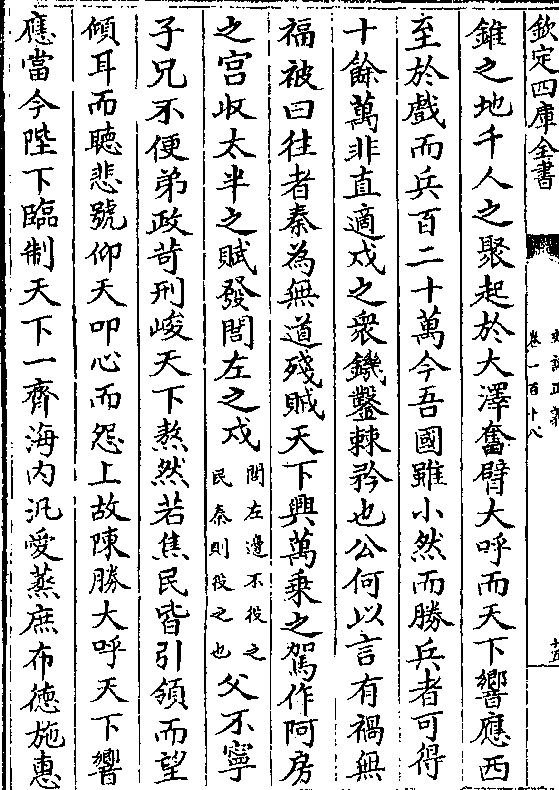 欽定四庫全書
卷一百十八
錐之地千人之聚起於大澤奮臂大呼而天下響應西
至於戲而兵百二十萬今吾國雖小然而勝兵者可得
十餘萬非直適戍之衆鐖鑿棘矜也公何以言有禍無
福被曰往者秦為無道殘賊天下興萬乗之駕作阿房
之宫收太半之賦發閭左之戍
閭左邊不役之
民秦則役之也
父不寧
子兄不便弟政苛刑峻天下熬然若焦民皆引領而望
傾耳而聽悲號仰天叩心而怨上故陳勝大呼天下響
應當今陛下臨制天下一齊海内汎愛蒸庶布徳施惠